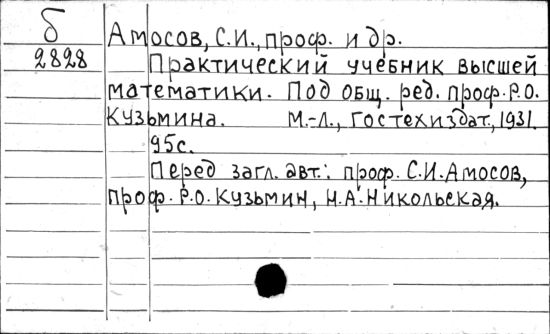 б
2828
Амосов, С.И., проф. и др.
Практический учебник высшей
математики. Под общ. ред. проф. Р.О.
Кузьмина. М.-Л., Гостехиздат, 1931.
95с.
Перед загл. авт.: проф. С.И. Амосов,
проф. Р.О. Кузьмин, Н.А. Никольская.